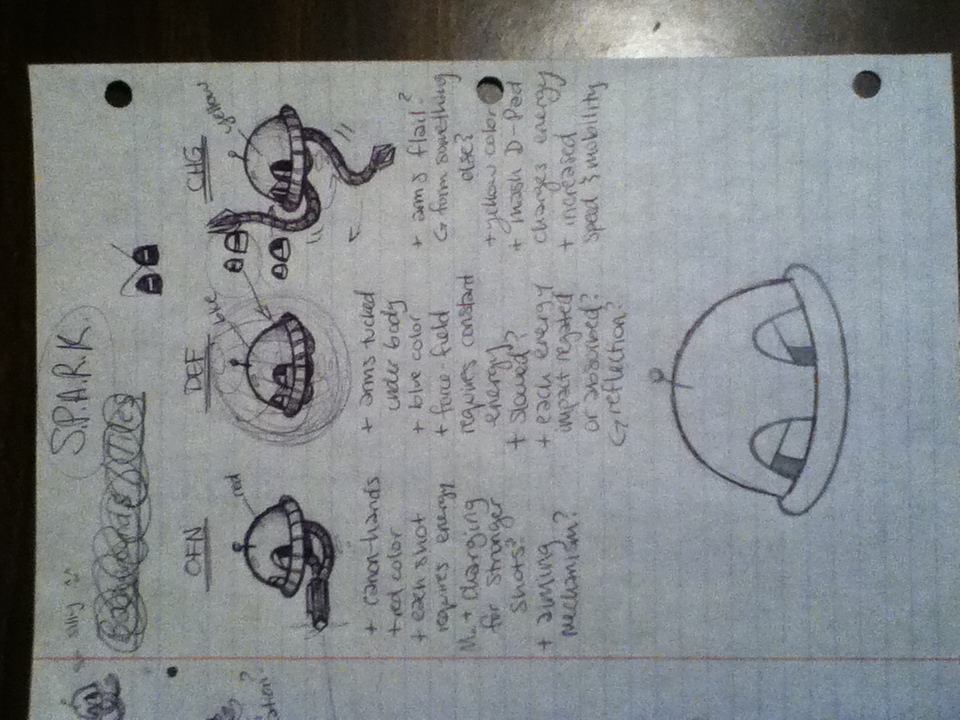 silly
S.P.A.R.K
OFN
red
+ canon-hands
+ red color
+ each shot
requires energy
+ charging
for stronger
shots?
+ aiming
mechanism?
DEF
blue
+ arms tucked
under body
+ blue color
+ force-field
requires constant
energy
+ slowed?
+ each energy
impact negated
or absorbed?
reflection?
CHG
yellow
+ arms flail?
form something
else?
+ yellow color
+ mash D-Pad
charges energy
+ increased
speed & mobility